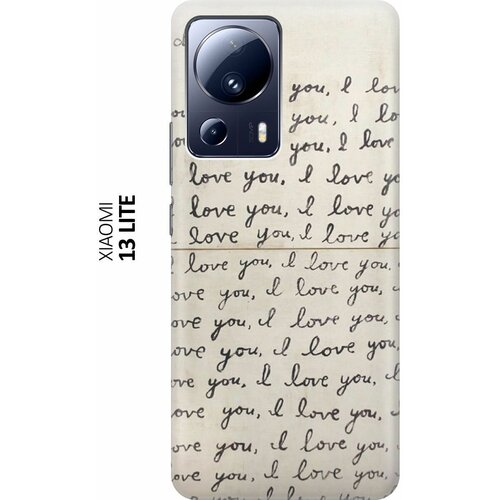 XIAOMI
13 LITE
you, I lov
you, I lo
you, I love
love you, I love yo
love you, I love yo
love you, I love yo
I love you, I love you,
ove you, I love you,
ove you, I love you,
ove you, I love you,
ove you, I love you, I
ove you, I love you,
ove you, I love you,
ove you, I love you,